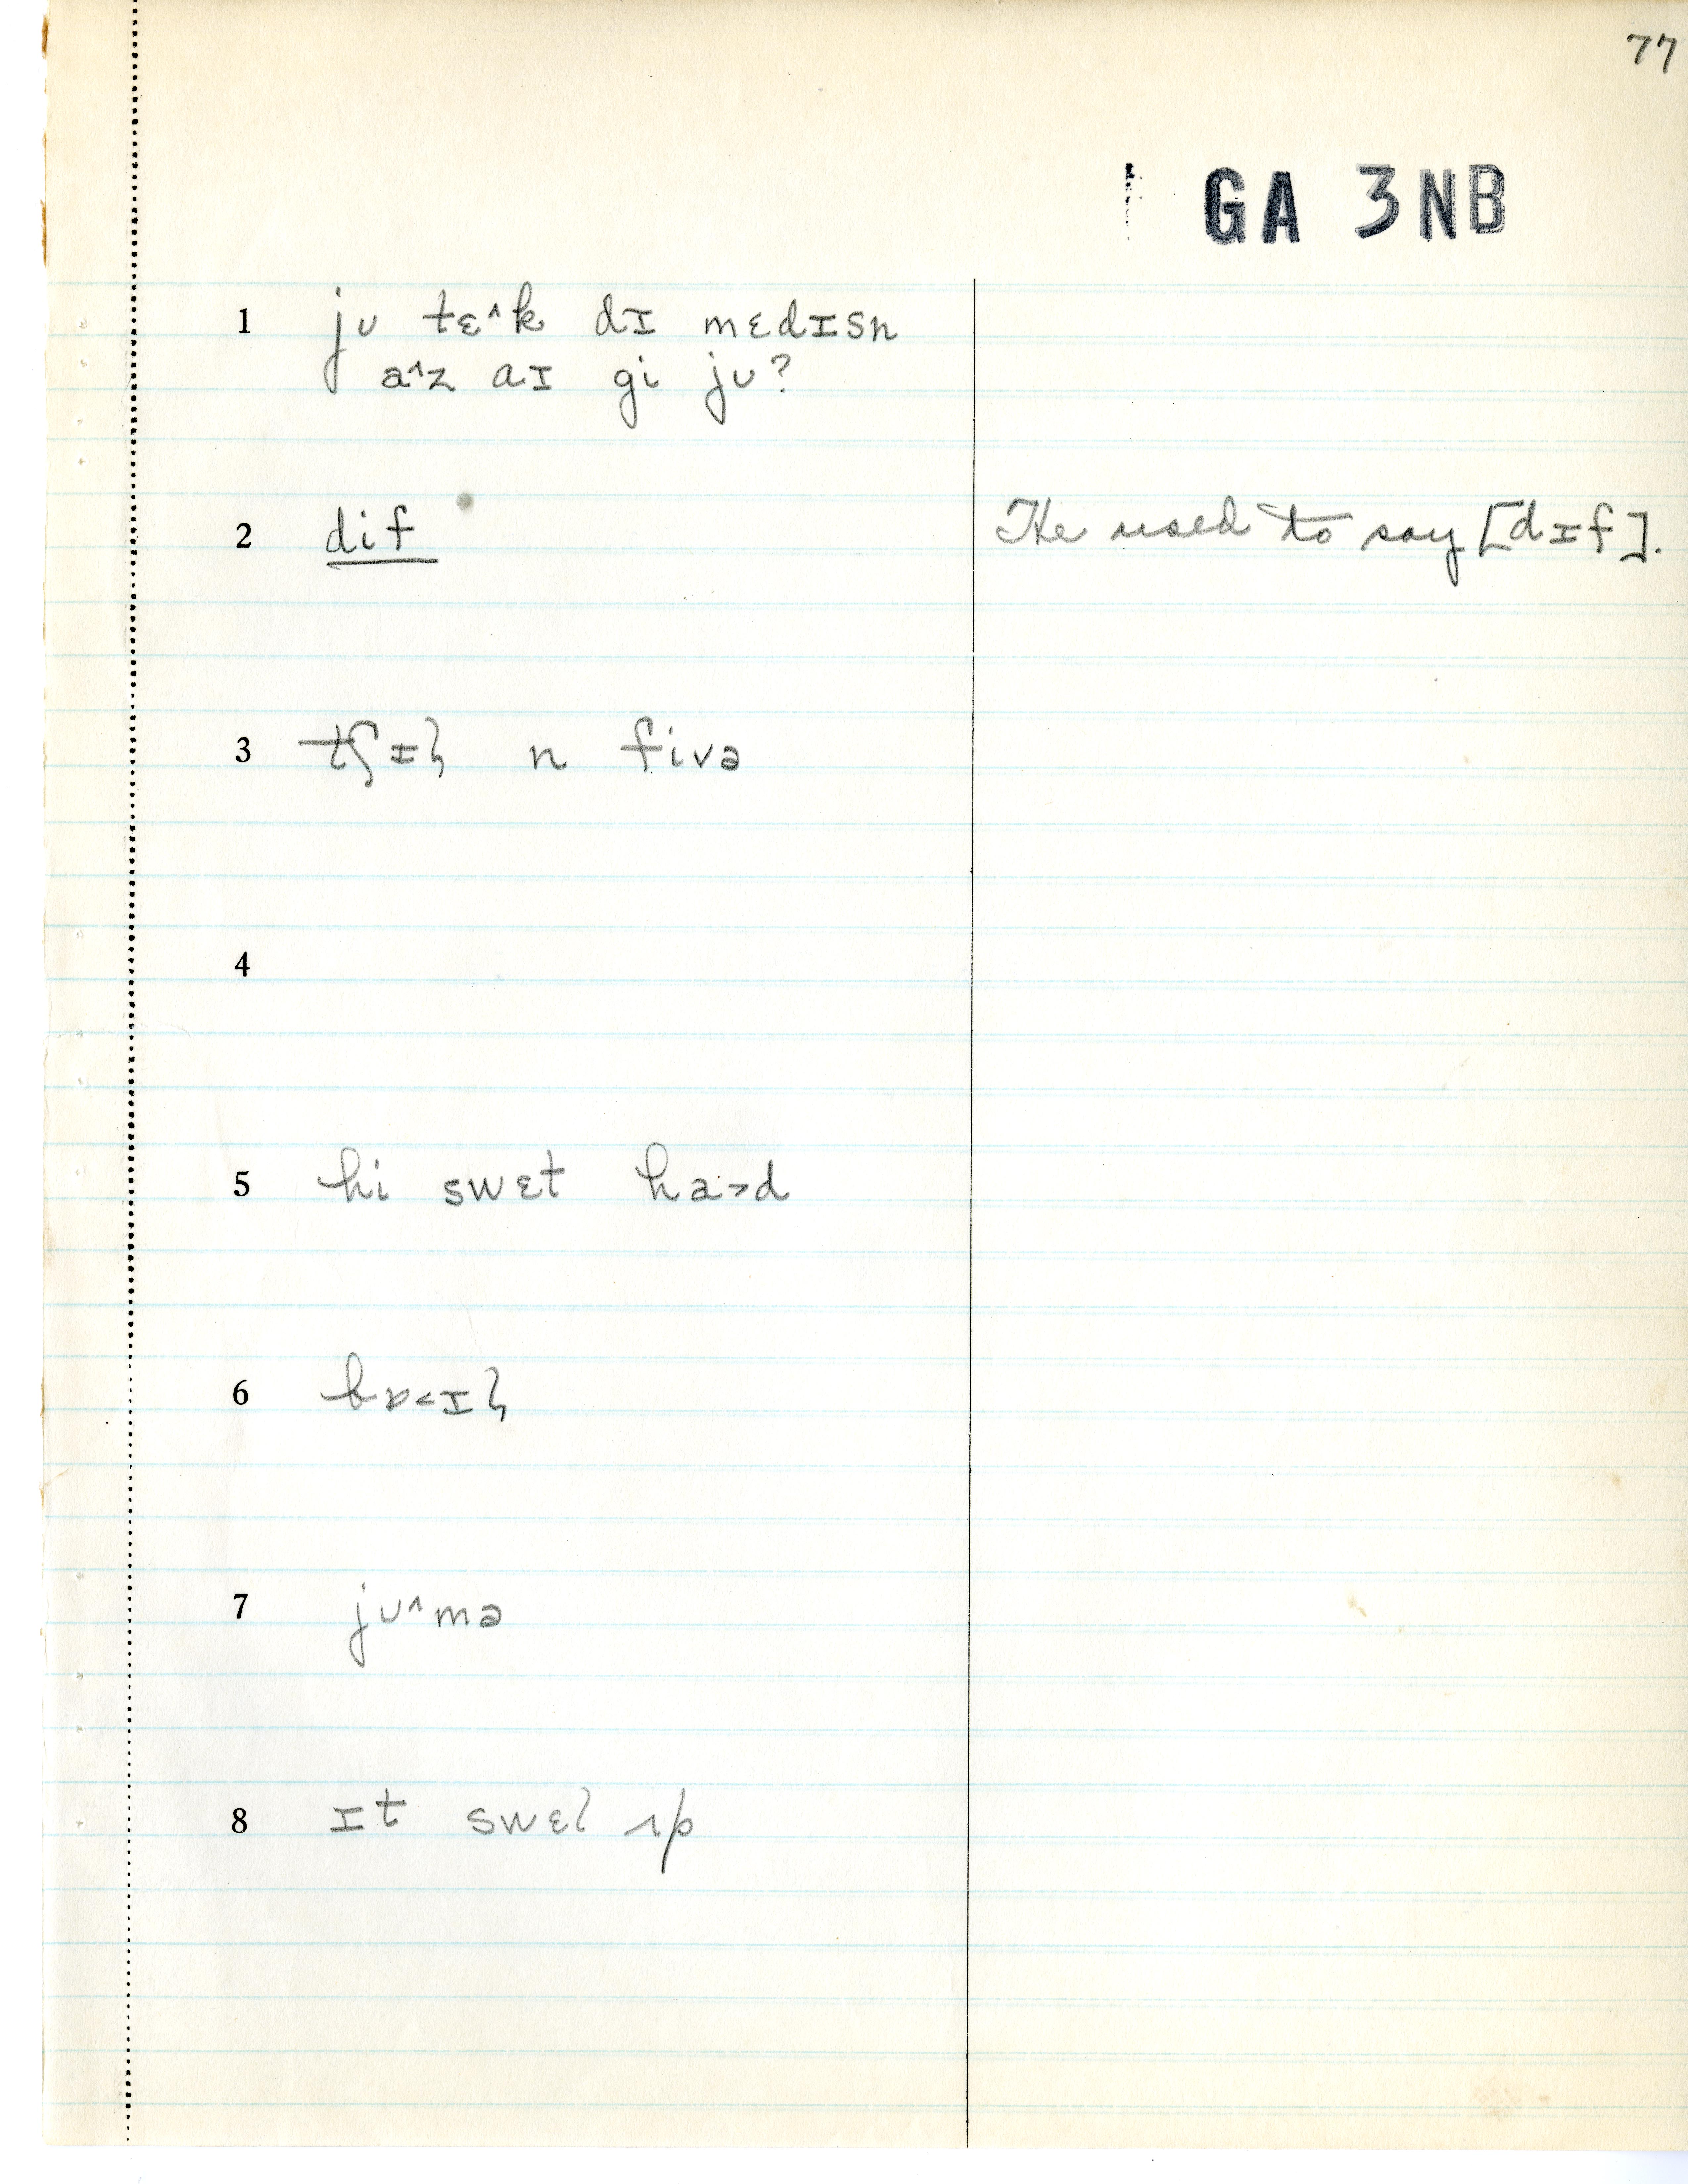 77
GA 3NB
1 ju tɛ^k dɪ mɛdɪsn
a^z aɪ gi ju?
2 dif He used to say [dɪf].
3 tʃɪɫ n fivə
4
5 hi swɛt ha>d
6 bɒ<ɪɫ
7 ju^mə
8 ɪt swɛl ʌp